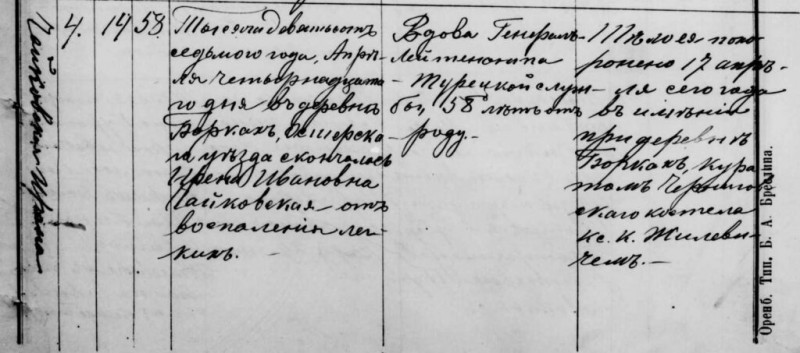 Чайковская Ирена
4.
14
58.
Тысяча девятьсотъ
седьмого года, Апрѣ-
ля четырнадцата-
го дня въ деревнѣ
Боркахъ, Остерска-
го уѣзда скончалась
Ирена Ивановна
Чайковская отъ
воспаленія лег-
кихъ.
Вдова Генералъ-
Лейтенанта
Турецкой служ-
бы, 58 лѣтъ отъ
роду.
Тѣло ея похо-
ронено 17 апрѣ-
ля сего года
въ имѣніи
при деревнѣ
Боркахъ, Кура-
томъ Чернигов-
скаго костела
кс. К. Жилеви-
чемъ.
Оренб. Тип. Б. А. Бреслина.